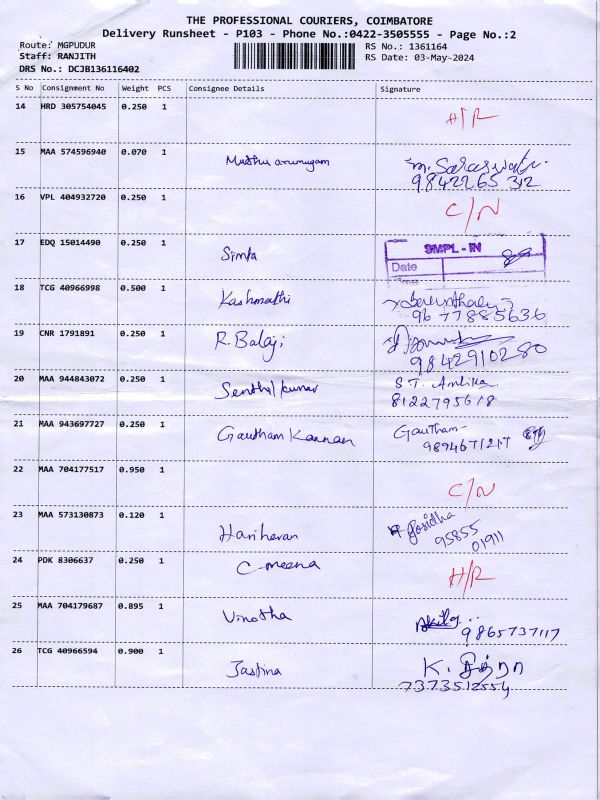 THE PROFESSIONAL COURIERS, COIMBATORE
Delivery Runsheet - P103 - Phone No.:0422-3505555 - Page No.:2
Route: MGPUDUR
RS No.: 1361164
Staff: RANJITH
RS Date: 03-May-2024
DRS No.: DCJB136116402
S No Consignment No Weight PCS Consignee Details Signature
14 HRD 305754045 0.250 1 H/R
15 MAA 574596940 0.070 1 Muthu arumugam M. Saraswathi
9842265 312
16 VPL 404932720 0.250 1 C/N
17 EDQ 15014490 0.250 1 Simta SMPL - IN
Date
Time
18 TCG 40966998 0.500 1 Kashmathi
9677885636
19 CNR 1791891 0.250 1 R. Balaji
9842910280
20 MAA 944843072 0.250 1 Senthil kumar S T. Ambika
8122795618
21 MAA 943697727 0.250 1 Gautham Kannan Gautham
9894671217
22 MAA 704177517 0.950 1 C/N
23 MAA 573130873 0.120 1 Hariharan
95855
01911
24 PDK 8306637 0.250 1 C. meena H/R
25 MAA 704179687 0.895 1 Vinotha
9865737117
26 TCG 40966594 0.900 1 Jastina K.
7373512554